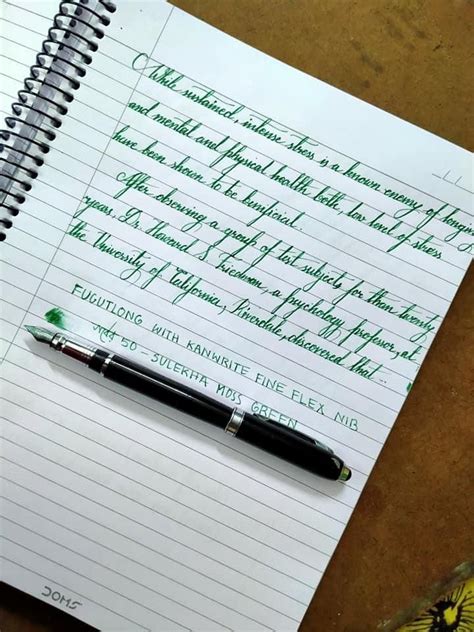 While sustained, intense stress is a known enemy of
and mental and physical health both, low level of stress
have been shown to be benificial.
After observing a group of test subjects for then twenty
years, Dr. Howard S Friedman, a psychology profesor, at
the University of California, Riverdale, discovered that ...
FUGUTLONG WITH KANWRITE FINE FLEX NIB
50 - SULEKHA MOSS GREEN
DOMS